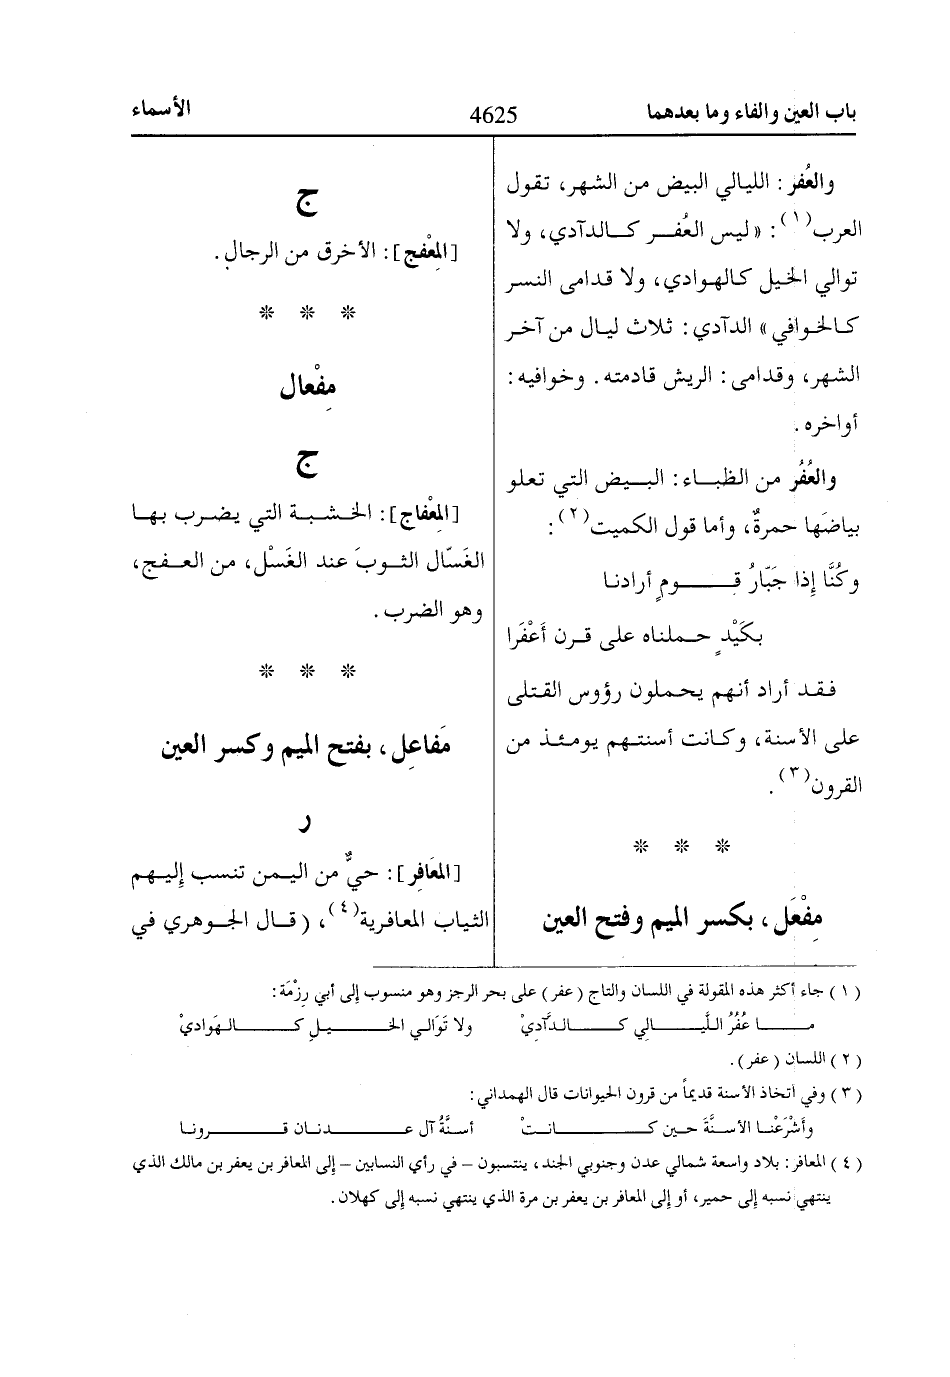 باب العين والفاء وما بعدهما 4625 الأسماء
والعُفر: الليالي البيض من الشهر، تقول
العرب(١): «ليس العُفر كالدآدي، ولا
توالي الخيل كالهوادي، ولا قدامى النسر
كالخوافي» الدآدي: ثلاث ليال من آخر
الشهر، وقدامى: الريش قادمته. وخوافيه:
أواخره.
والعُفُر من الظباء: البيض التي تعلو
بياضَها حمرةٌ، وأما قول الكميت(٢):
وكُنَّا إِذا جَبّارُ قومٍ أرادنا
بكَيْدٍ حملناه على قرن أَعْفَرا
فقد أراد أنهم يحملون رؤوس القتلى
على الأسنة، وكانت أسنتهم يومئذ من
القرون(٣).
* * *
مِفْعَل، بكسر الميم وفتح العين
ج
[المِعْفج]: الأخرق من الرجال.
* * *
مِفْعال
ج
[المِعْفاج]: الخشبة التي يضرب بها
الغَسّال الثوبَ عند الغَسْل، من العفج،
وهو الضرب.
* * *
مَفاعِل، بفتح الميم وكسر العين
ر
[المعَافِر]: حيٌّ من اليمن تنسب إِليهم
الثياب المعافرية(٤)، (قال الجوهري في
(١) جاء أكثر هذه المقولة في اللسان والتاج (عفر) على بحر الرجز وهو منسوب إلى أبي رِزْمَة:
مـا عُفُرُ اللَّيـالي كـالدَّآدِيْ ولا تَوَالـي الخـيـلِ كـالـهَوادِيْ
(٢) اللسان (عفر).
(٣) وفي اتخاذ الأسنة قديماً من قرون الحيوانات قال الهمداني:
وأَشْرَعْنـا الأسنَّةَ حـين كـانـتْ أسـنَّةُ آل عـدنـان قـرونـا
(٤) المعافر: بلاد واسعة شمالي عدن وجنوبي الجند، ينتسبون – في رأي النسابين – إلى المعافر بن يعفر بن مالك الذي
ينتهي نسبه إلى حمير، أو إلى المعافر بن يعفر بن مرة الذي ينتهي نسبه إلى كهلان.